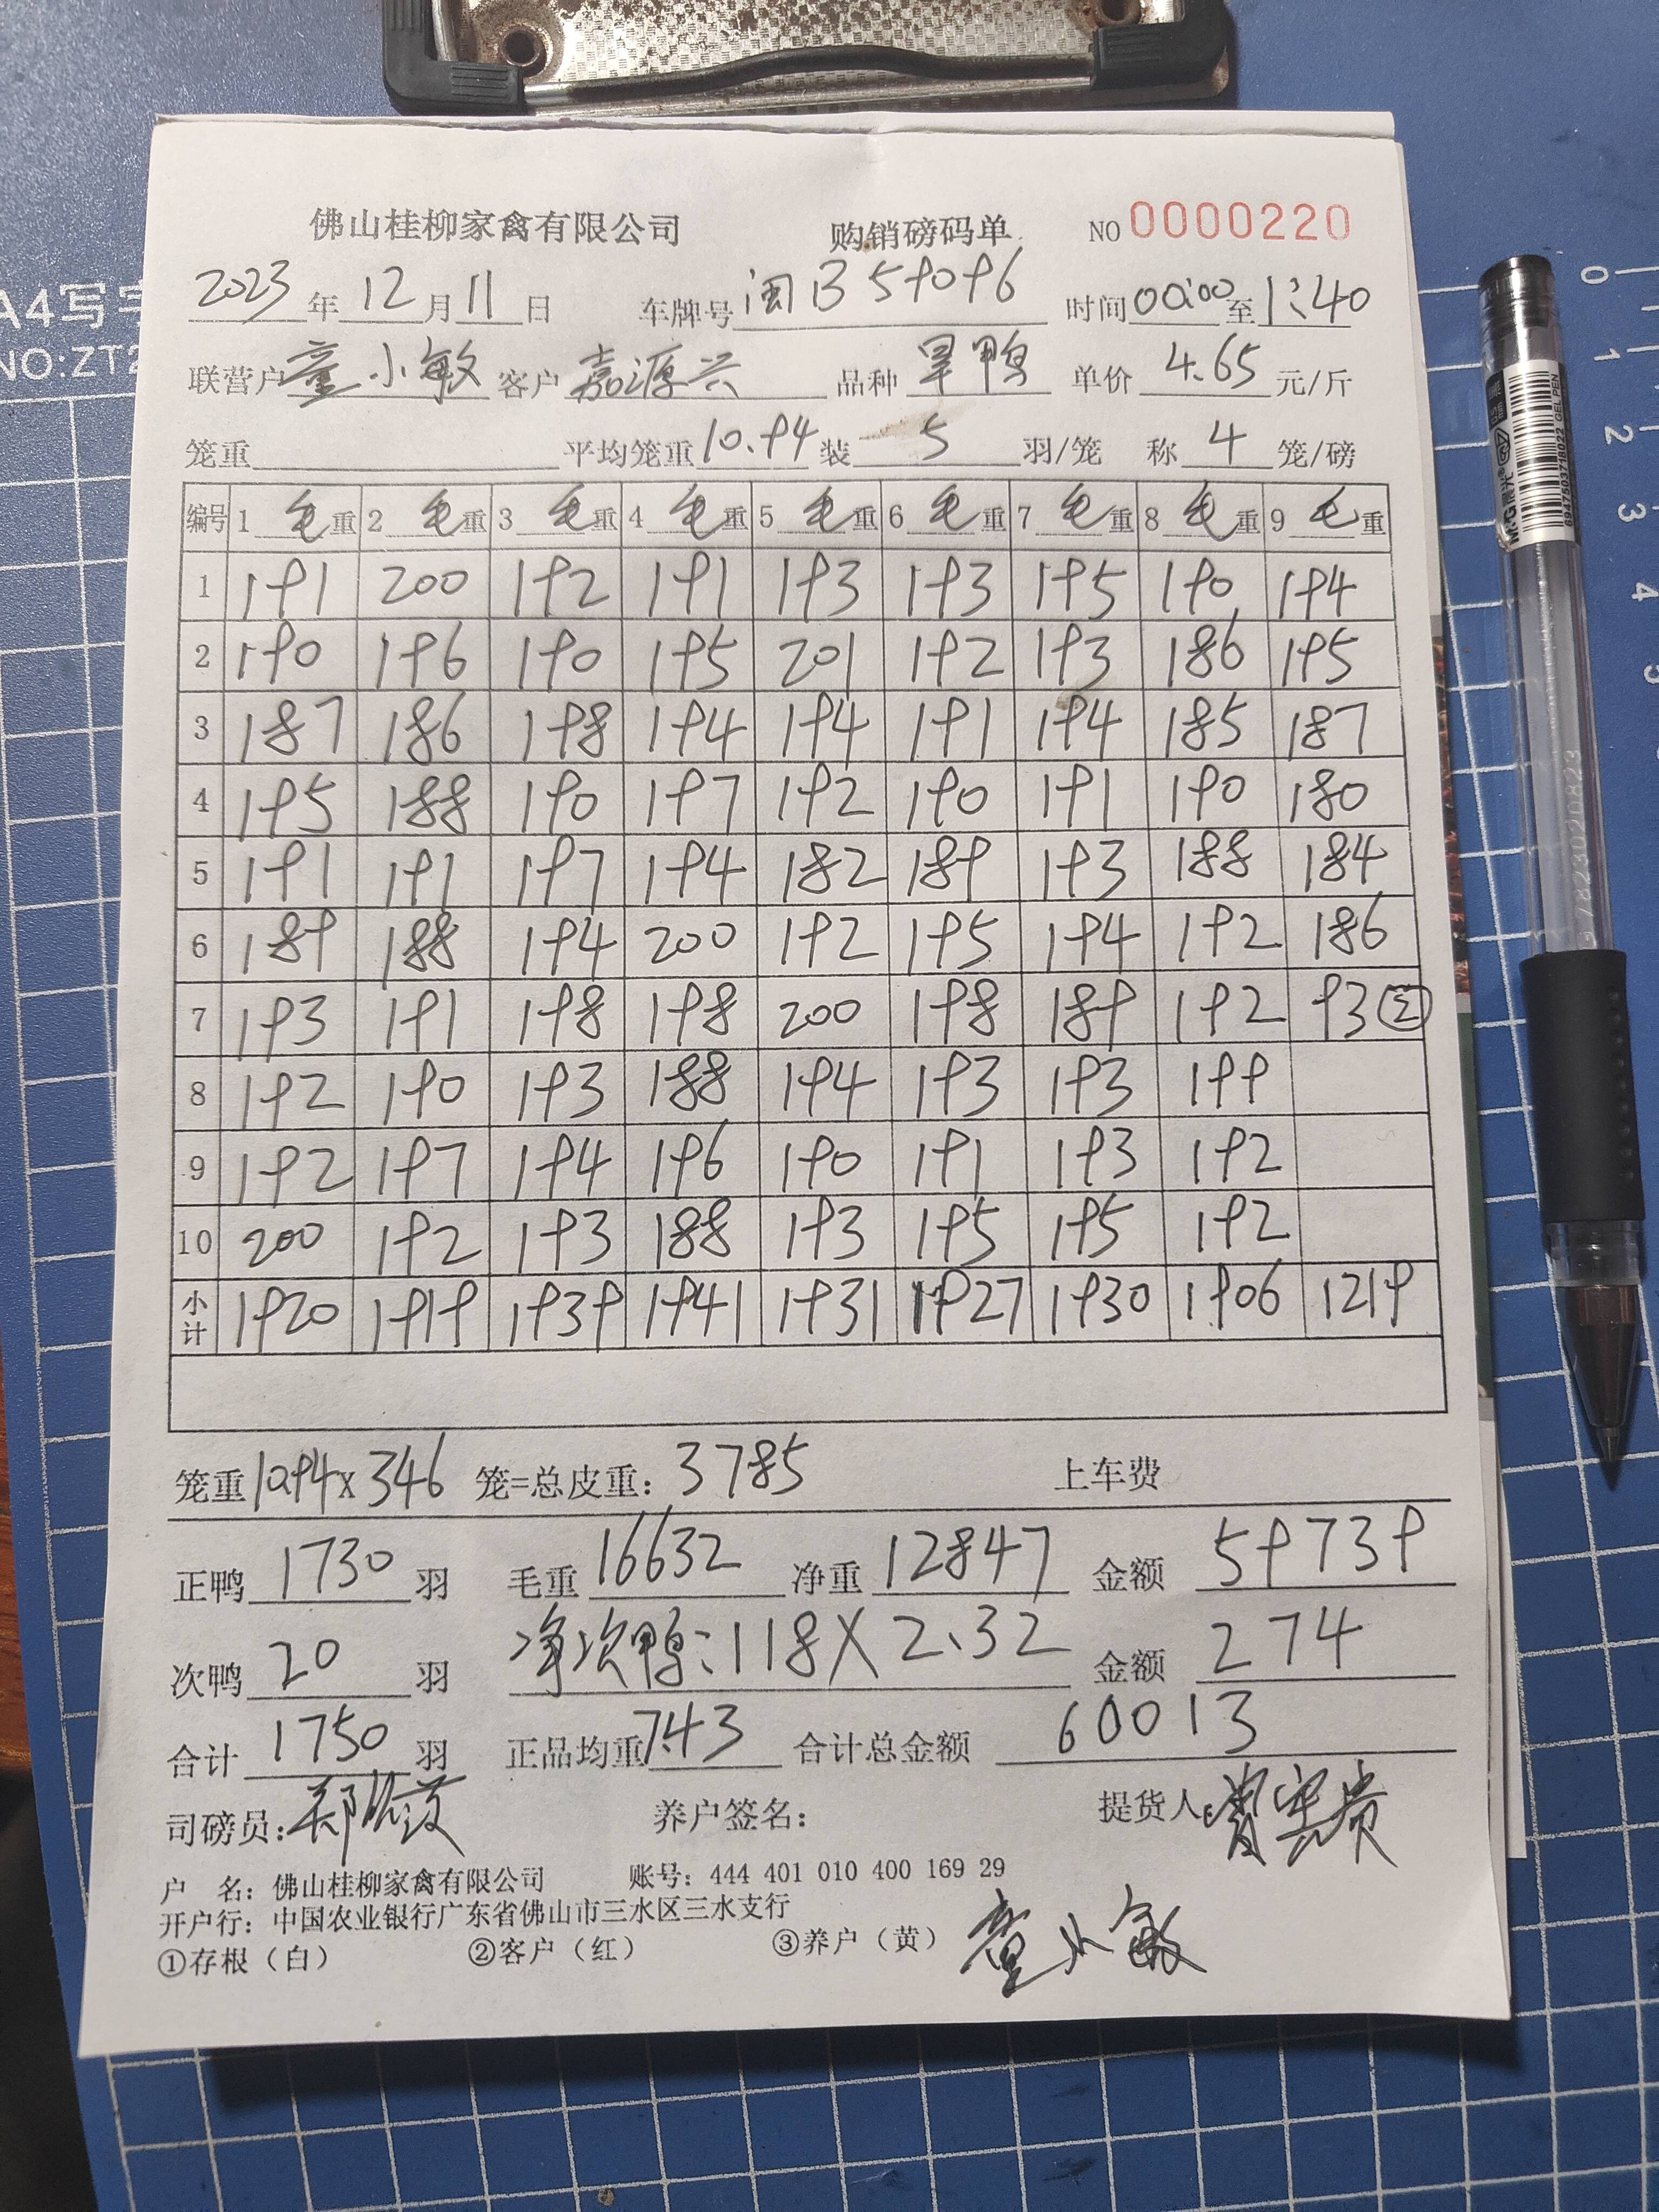 佛山桂柳家禽有限公司 购销磅码单 NO 0000220
2023年12月11日 车牌号 闽B59096 时间 00:00 至 1:40
联营户 童小敏 客户 嘉源兴 品种 旱鸭 单价 4.65 元/斤
笼重 平均笼重 10.94 装 5 羽/笼 称 4 笼/磅
编号 1 毛重 2 毛重 3 毛重 4 毛重 5 毛重 6 毛重 7 毛重 8 毛重 9 毛重
1 191 200 192 191 193 193 195 190 194
2 190 196 190 195 201 192 193 186 195
3 187 186 198 194 194 191 194 185 187
4 195 188 190 197 192 190 191 190 180
5 191 191 197 194 182 189 193 188 184
6 189 188 194 200 192 195 194 192 186
7 193 191 198 198 200 198 189 192 93 ②
8 192 190 193 188 194 193 193 199
9 192 197 194 196 190 191 193 192
10 200 192 193 188 193 195 195 192
小计 1920 1919 1939 1941 1931 1927 1930 1906 1219
笼重 10.94 x 346 笼=总皮重: 3785 上车费
正鸭 1730 羽 毛重 16632 净重 12847 金额 59739
次鸭 20 羽 净次鸭: 118 X 2.32 金额 274
合计 1750 羽 正品均重 7.43 合计总金额 60013
司磅员: 养户签名: 提货人:
户 名: 佛山桂柳家禽有限公司 账号: 444 401 010 400 169 29
开户行: 中国农业银行广东省佛山市三水区三水支行
①存根(白) ②客户(红) ③养户(黄) 童小敏
A4写字
NO:ZT2
M&G晨光 GEL PEN
6947503718022
0
1
2
3
4
5